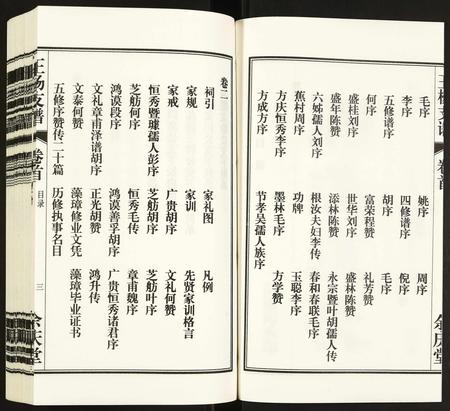 卷首
余庆堂
毛序 姚序 周序
李序 四修谱序 倪序
五修谱序 胡序 毛序
何序 富荣程赞 礼芳赞
盛桂刘序 世华刘序 盛林陈赞
盛年陈赞 添林陈赞 永宗暨叶胡儒人传
六姊儒人刘序 根汝夫妇李传 春和春联毛序
蕉村周序 功牌 玉聪李序
方庆恒秀李序 墨林毛序 方学赞
方成方序 节孝吴儒人族序
卷二
祠引 家礼图 凡例
家规 家训 先贤家训格言
家戒 广贵胡序 文礼何赞
恒秀暨璩儒人彭序 芝舫胡序 芝舫叶序
芝舫何序 恒秀毛传 章甫魏序
鸿谟段序 鸿谟善孚胡序 广贵恒秀诸君序
文礼章甫泽谱胡序 正光胡赞 鸿升传
文泰何赞 藻璋修业文凭 藻璋毕业证书
五修序赞传二十篇 历修执事名目
王杨支谱 卷首 目录 三 余庆堂